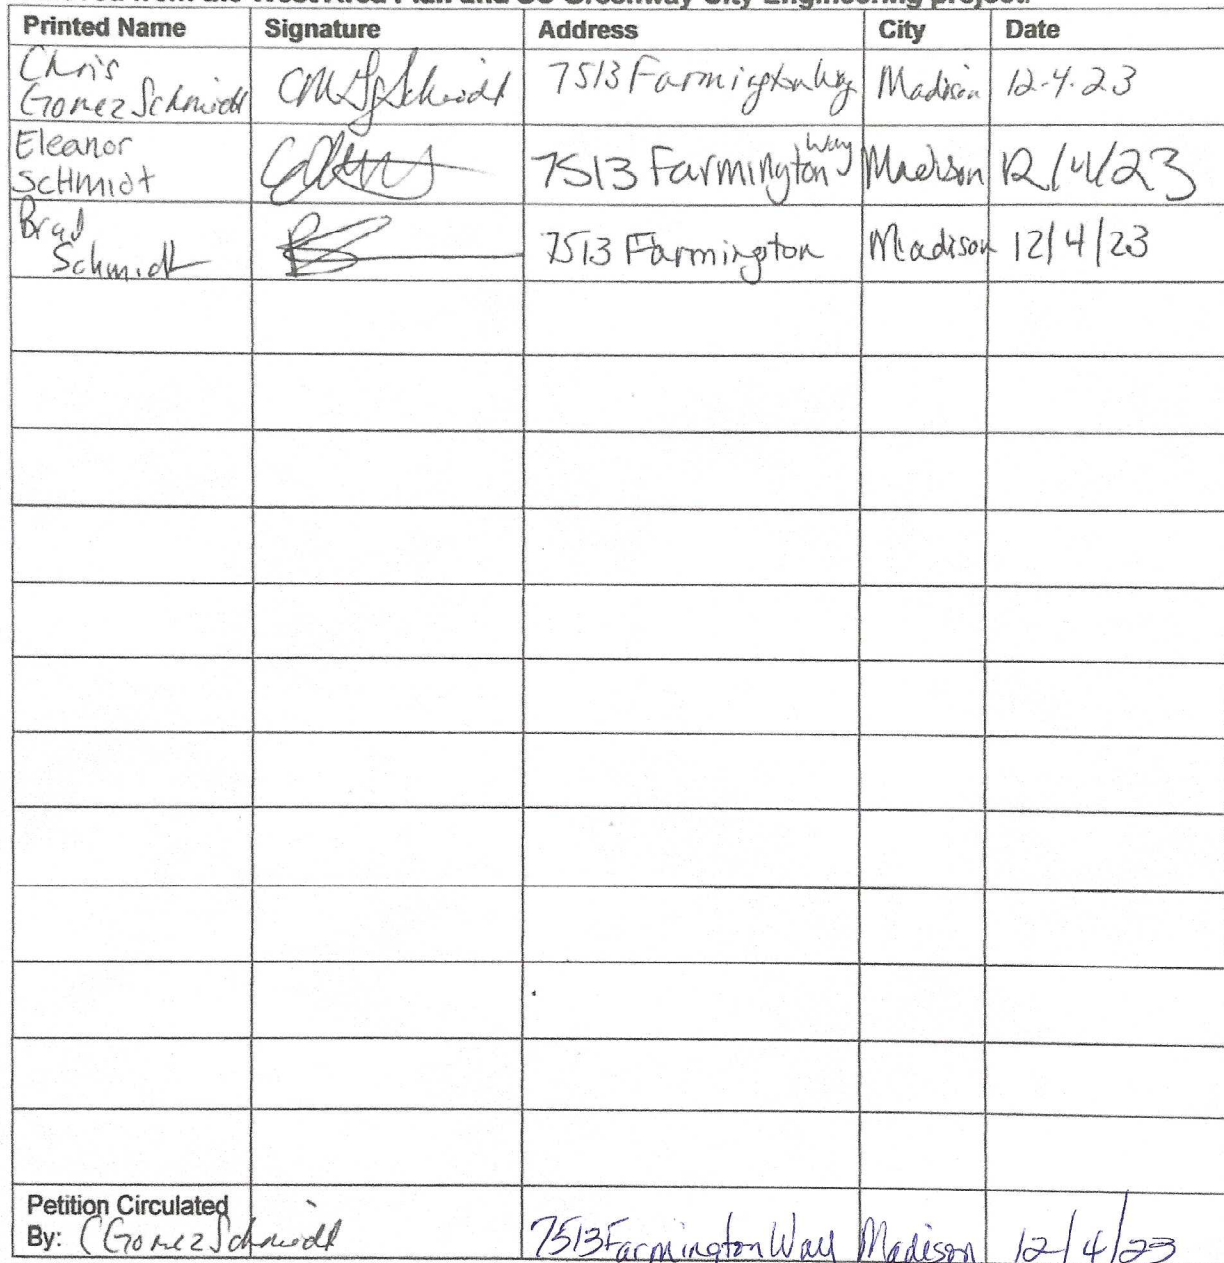 from the West Area Plan and SC Greenway City Engineering project.
Printed Name Signature Address City Date
Chris
Gomez Schmidt 7513 Farmington Way Madison 12-4-23
Eleanor
SCHMIDT 7513 Farmington Way Madison 12/4/23
Brad
Schmidt 7513 Farmington Madison 12/4/23
Petition Circulated
By: C Gomez Schmidt 7513 Farmington Way Madison 12/4/23